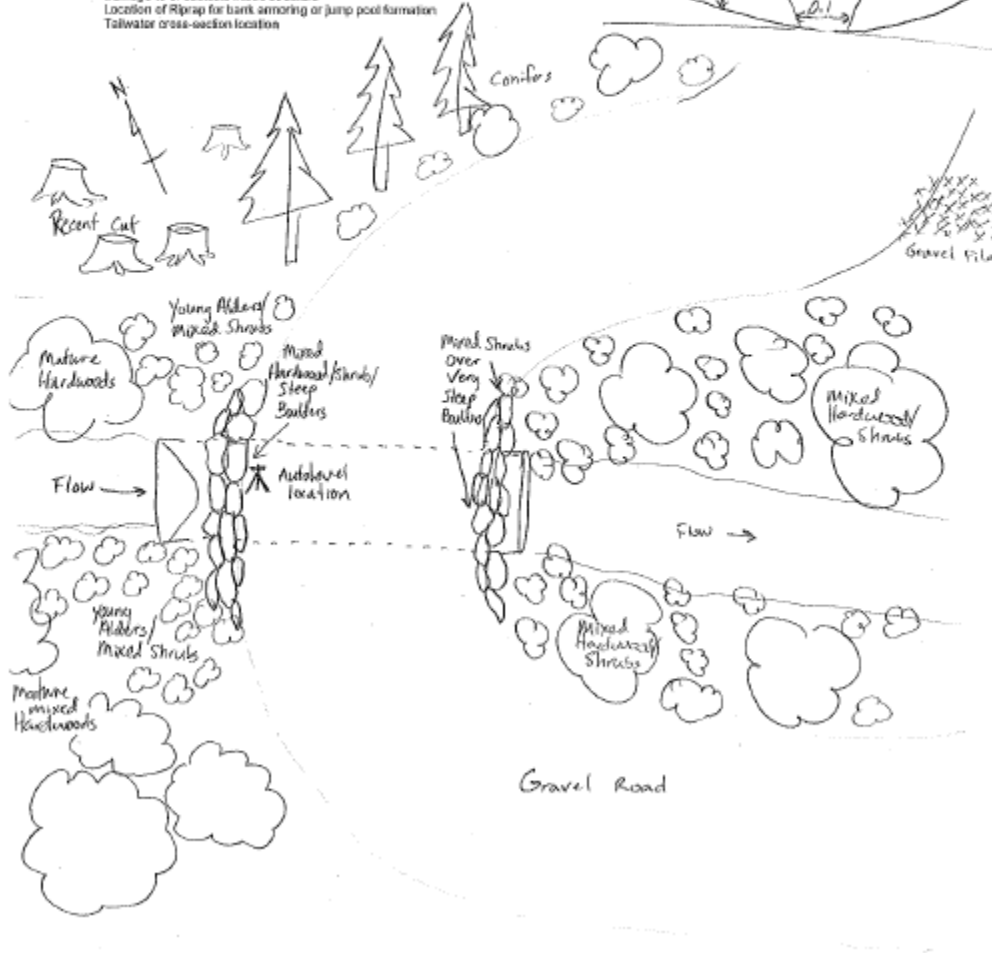 Location of Riprap for bank armoring or jump pool formation
Tailwater cross-section location
0.1
Conifers
N
Recent Cut
Gravel Pile
Young Alders/
Mixed Shrubs
Mature
Hardwoods
Mixed
Hardwood/Shrub/
Steep
Boulders
Mixed Shrubs
Over
Very
Steep
Boulders
Mixed
Hardwood/
Shrubs
Flow
Autolevel
location
Flow
Young
Alders/
Mixed Shrubs
Mixed
Hardwood/
Shrubs
Mature
mixed
Hardwoods
Gravel Road